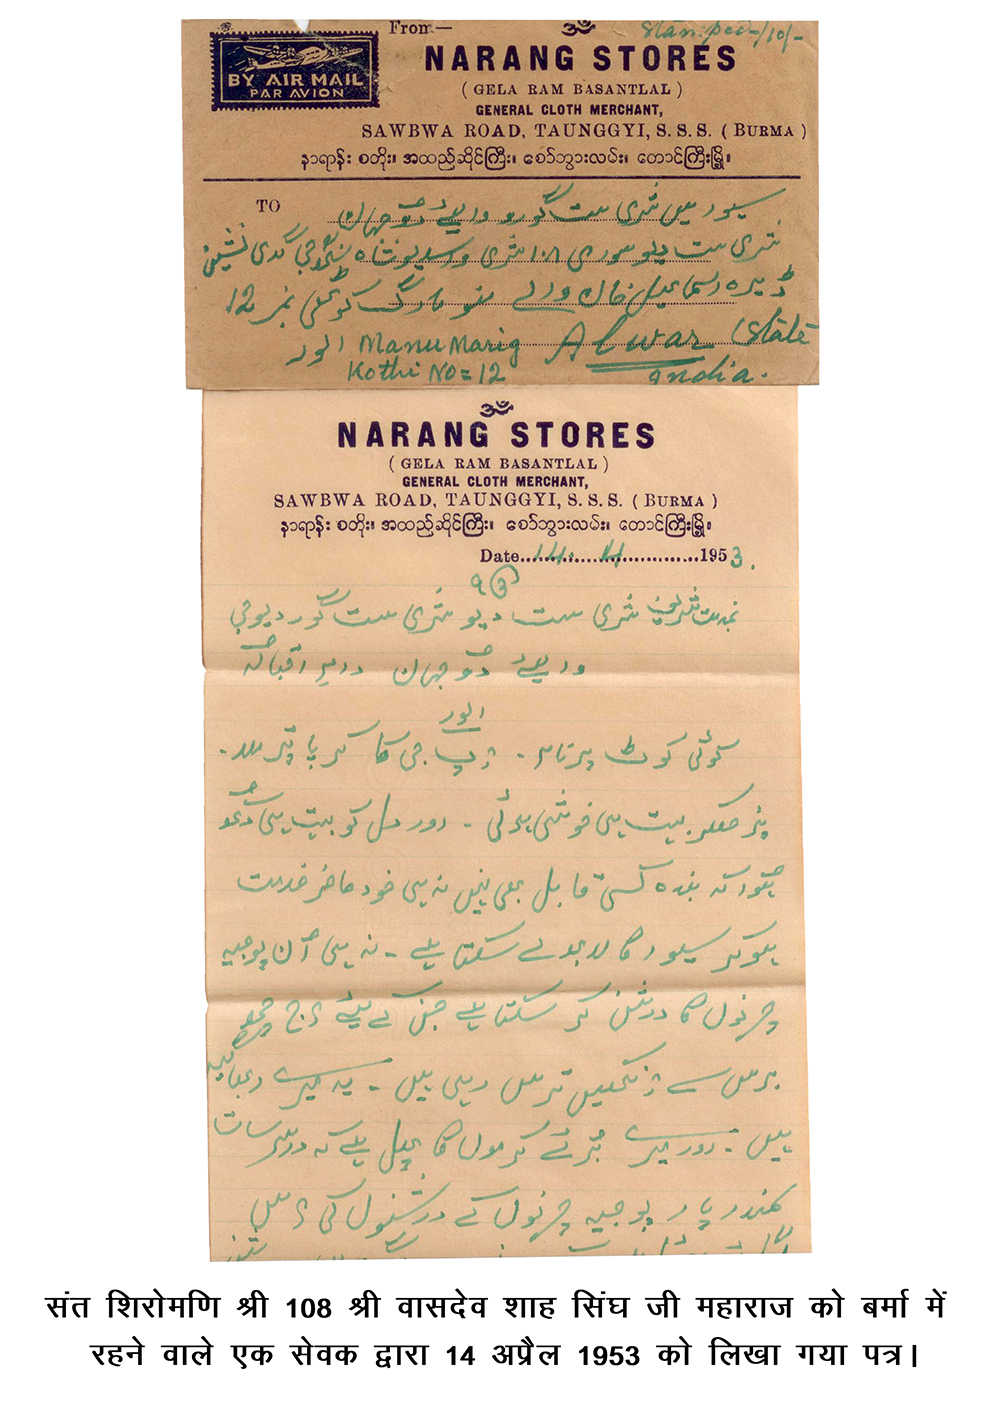 Stamped-/10/-
BY AIR MAIL
PAR AVION
From—
ॐ
NARANG STORES
( GELA RAM BASANTLAL )
GENERAL CLOTH MERCHANT,
SAWBWA ROAD, TAUNGGYI, S. S. S. ( BURMA )
နာရာန်း စတိုး၊ အထည်ဆိုင်ကြီး၊ စော်ဘွားလမ်း၊ တောင်ကြီးမြို့၊
TO
سیور میں شری ست گورو والئے دو جہان
شری ست دیو سوری ۱۰۸ شری واسدیو شاہ سنگھ جی گدی نشین
ڈیرہ اسماعیل خان والے منو مارگ کوٹھی نمبر 12
الور Manu Marig Alwar State
Kothi No = 12 India.
ॐ
NARANG STORES
( GELA RAM BASANTLAL )
GENERAL CLOTH MERCHANT,
SAWBWA ROAD, TAUNGGYI, S. S. S. ( BURMA )
နာရာန်း စတိုး၊ အထည်ဆိုင်ကြီး၊ စော်ဘွားလမ်း၊ တောင်ကြီးမြို့၊
Date....14....4..............1953.
شری ست دیو شری ست گور دیو جی
والئے دو جہان دام اقبالہ
الور
کوئی کوٹ پرنام۔ آپ جی کا کرپا پتر ملا۔
پڑھکر بہت ہی خوشی ہوئی۔ اور دل کو بہت ہی دکھ
ہوا کہ بندہ کسی قابل بھی نہیں نہ ہی خود حاضر خدمت
ہوکر سیوا کا لابھ لے سکتا ہے۔ نہ ہی آن پوجیہ
چرنوں کا درشن کر سکتا ہے جن کے لیئے آج چھ
برس سے آنکھیں ترس رہی ہیں۔ یہ میرے
ہیں۔ اور میرے برے کرموں کا پھل ہے کہ سات
سمندر پار پوجیہ چرنوں کے درشنوں کی آس
संत शिरोमणि श्री 108 श्री वासदेव शाह सिंघ जी महाराज को बर्मा में
रहने वाले एक सेवक द्वारा 14 अप्रैल 1953 को लिखा गया पत्र।